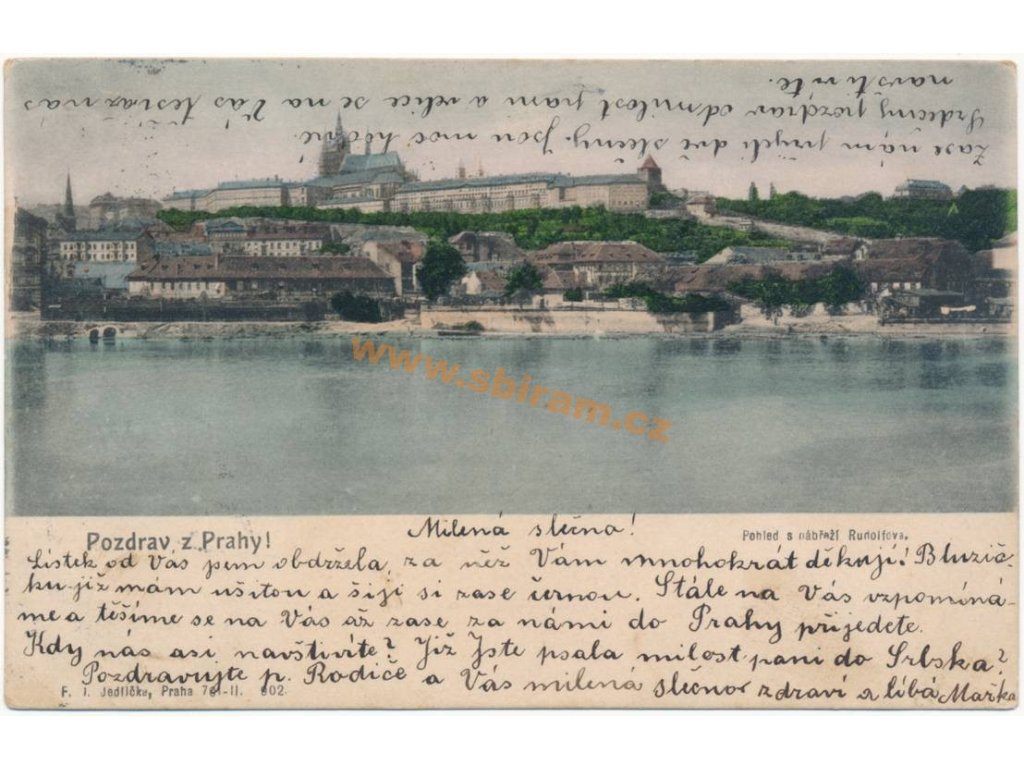 Zase nám přijeli dvě slečny. Jsou moc hodné.
Srdečný pozdrav od milost paní a velice se na Vás těší až nás
navštívíte.
www.sbiram.cz
Pozdrav z Prahy!
Milená slečno!
Pohled s nábřeží Rudolfova.
Lístek od Vás jsem obdržela, za něž Vám mnohokrát děkuji! Bluzič-
ku již mám ušitou a šiji si zase černou. Stále na Vás vzpomíná-
me a těšíme se na Vás až zase za námi do Prahy přijedete.
Kdy nás asi navštívíte? Již Jste psala milost paní do Srbska?
Pozdravujte p. Rodiče a Vás milená slečno zdraví a líbá Mařka
F. J. Jedlička, Praha 791-II. 902.